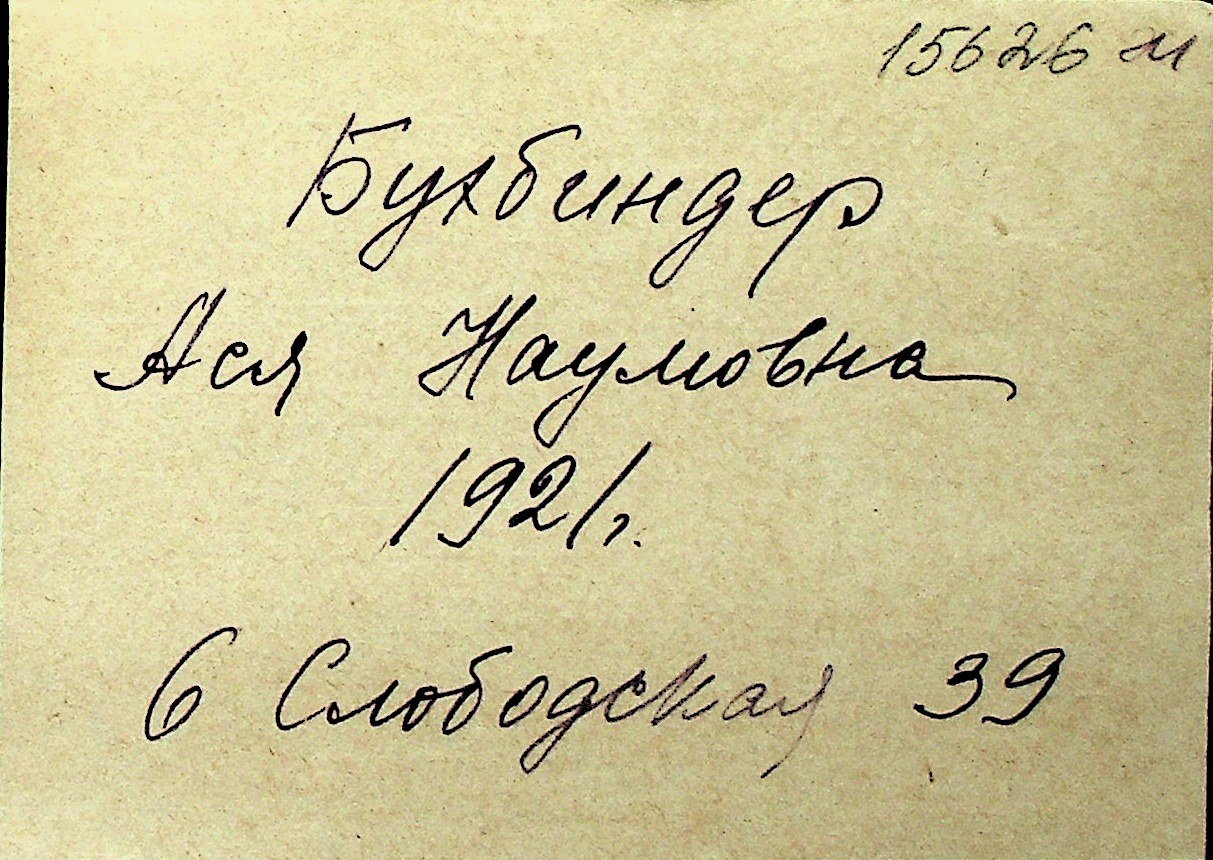 15626 м
Бухбиндер
Ася Наумовна
1921г.
6 Слободская 39